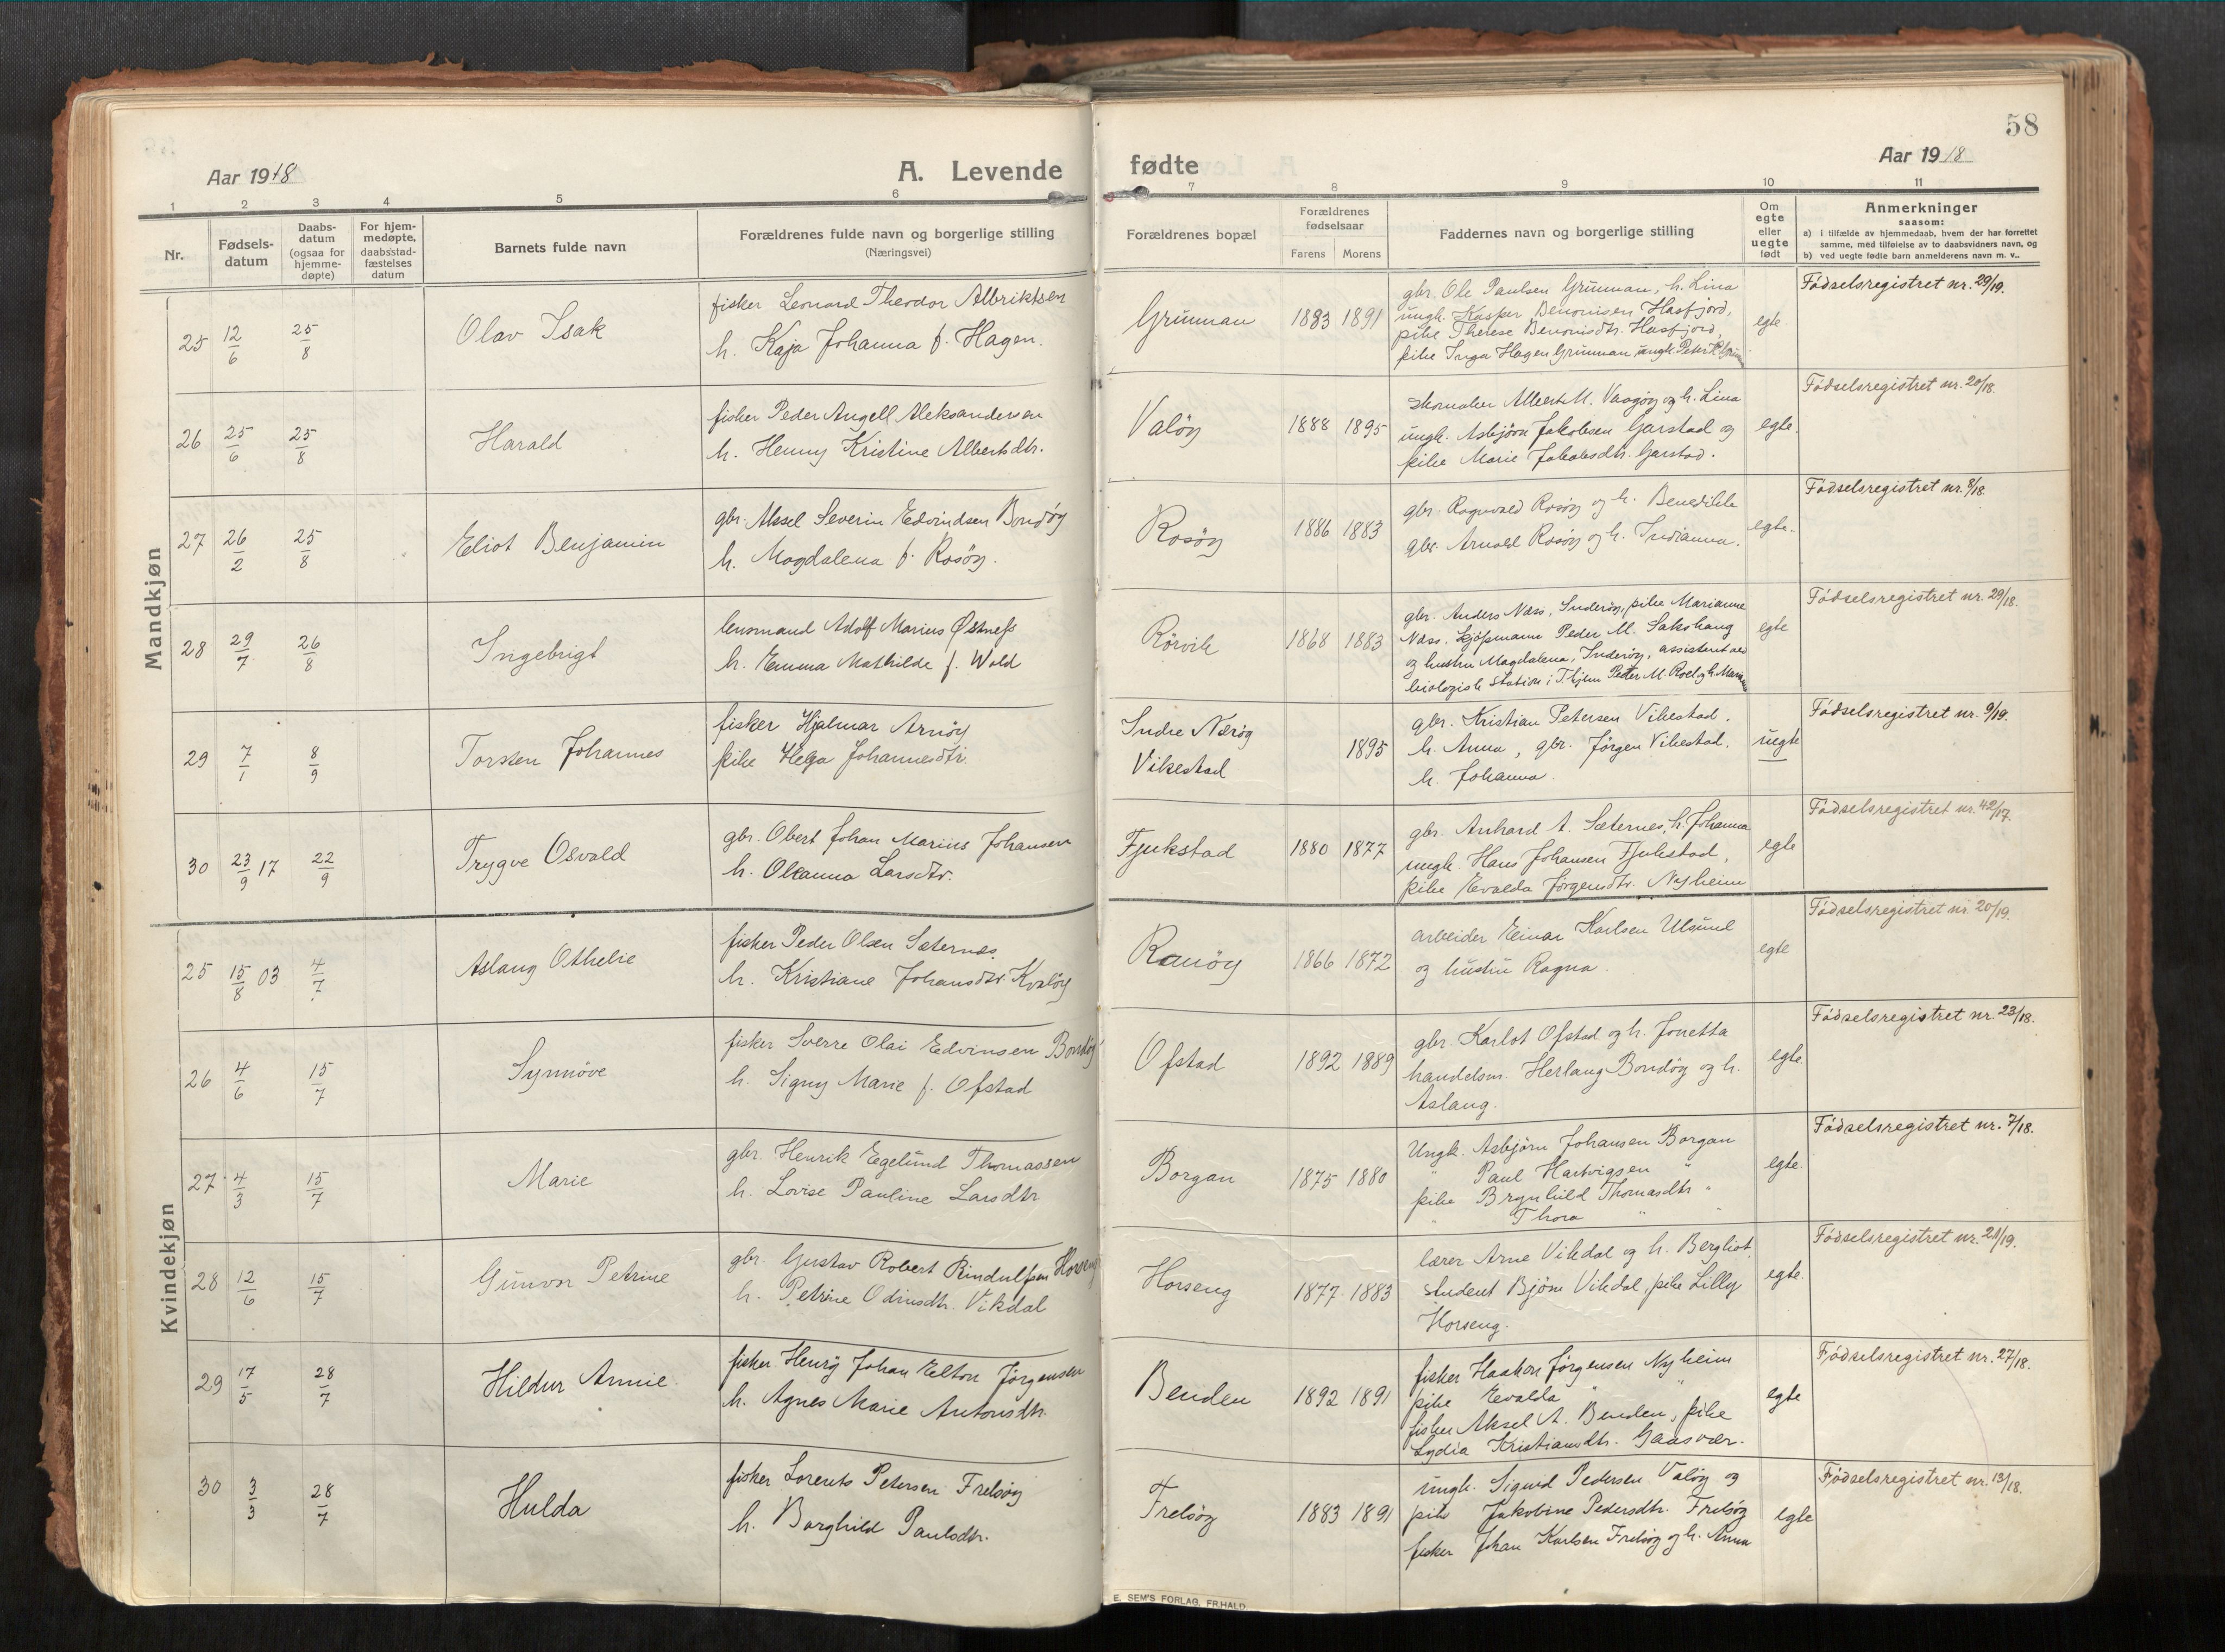 58
Aar 1918
A. Levende
fødte
Aar 1918
1 2 3 4 5 6 7 8 9 10 11
Nr.
Fødsels-
datum
Daabs-
datum
(ogsaa for
hjemme-
døpte)
For hjem-
medøpte,
daabsstad-
fæstelses
datum
Barnets fulde navn
Forældrenes fulde navn og borgerlige stilling
(Næringsvei)
Forældrenes bopæl
Forældrenes
fødselsaar
Farens Morens
Faddernes navn og borgerlige stilling
Om
egte
eller
uegte
født
Anmerkninger
saasom:
a) i tilfælde av hjemmedaab, hvem der har forrettet
samme, med tilføielse av to daabsvidners navn, og
b) ved uegte fødte barn anmelderens navn m. v..
Mandkjøn
25 12/6 25/8 Olav Isak
fisker Leonard Theodor Albriktsen
h. Kaja Johanna f. Hagen.
Grinnan 1883 1891
gbr. Ole Paulsen Grinnan, h. Lina
ungk. Kasper Benonisen Hasfjord,
pike Therese Benonisdtr. Hasfjord,
pike Inga Hagen Grinnan, ungk. Peter
egte
Fødselsregistret nr. 29/19.
26 25/6 25/8 Harald
fisker Peder Angell Aleksandersen
h. Henny Kristine Albertsdtr.
Valøy 1888 1895
skomaker Albert M. Vaagøy og h. Lina
ungk. Asbjørn Jakobsen Garstad og
pike Marie Jakobsdtr. Garstad.
egte.
Fødselsregistret nr. 20/18.
27 26/2 25/8 Eliot Benjamin
gbr. Aksel Severin Edvindsen Bondøy
h. Magdalena f. Rosøy.
Rosøy 1886 1883
gbr. Ragnvald Rosøy og h. Benedikte
gbr. Arnold Rosøy og h. Indianna.
egte.
Fødselsregistret nr. 8/18.
28 29/7 26/8 Ingebrigt
lensmand Adolf Marius Østnes
h. Emma Mathilde f. Wold
Rørvik 1868 1883
gbr. Anders Næss, Inderøy, pike Marianne
Næss. kjøpmann Peder M. Sakshaug
og hustru Magdalena, Inderøy, assistent ved
biologisk Station i T.hjem Peder M. Roel og h.
egte
Fødselsregistret nr. 29/18.
29 7/1 8/9 Torsten Johannes
fisker Hjalmar Arnøy
pike Helga Johannesdtr.
Indre Nærøy
Vikestad
1895
gbr. Kristian Petersen Vikestad.
h. Anna, gbr. Jørgen Vikestad.
h. Johanna.
uegte
Fødselsregistret nr. 9/19.
30 23/9 17 22/9 Trygve Osvald
gbr. Obert Johan Marius Johansen
h. Oleanna Larsdtr.
Fjukstad 1880 1877
gbr. Anhard A. Sæternes, h. Johanna
ungk. Hans Johansen Fjukstad,
pike Evalda Jørgensdtr. Nyheim
egte
Fødselsregistret nr. 42/17.
Kvindekjøn
25 15/8 03 4/7 Aslaug Othelie
fisker Peder Olsen Sæternes.
h. Kristiane Johansdtr. Kvaløy
Ramøy 1866 1872
arbeider Einar Karlsen Ulsund
og hustru Ragna.
egte
Fødselsregistret nr. 20/19.
26 4/6 15/7 Synnöve
fisker Sverre Olai Edvinsen Bondøy
h. Signy Marie f. Ofstad
Ofstad 1892 1889
gbr. Karlot Ofstad og h. Jonetta
handelsm. Herlaug Bondøy og h.
Aslaug.
egte.
Fødselsregistret nr. 23/18.
27 4/3 15/7 Marie
gbr. Henrik Egelund Thomassen
h. Lovise Pauline Larsdtr
Borgan 1875 1880
Ungk. Asbjørn Johansen Borgan
" Paul Hartvigsen "
pike Brynhild Thomasdtr "
" Thora " "
egte.
Fødselsregistret nr. 7/18.
28 12/6 15/7 Gunvor Petrine
gbr. Gustav Robert Rindulfsen Horseng
h. Petrine Odinsdtr. Vikdal
Horseng 1877 1883
lærer Arne Vikdal og h. Bergliot,
student Bjørn Vikdal, pike Lilly
Horseng.
egte.
Fødselsregistret nr. 21/19.
29 17/5 28/7 Hildur Annie.
fisker Henry Johan Elton Jørgensen
h. Agnes Marie Antonsdtr.
Benden 1892 1891
fisker Haakon Jørgensen Nyheim
pike Evalda " "
fisker Aksel A. Benden, pike
Lydia Kristiansdtr. Gaasvær.
egte
Fødselsregistret nr. 27/18.
30 3/3 28/7 Hulda
fisker Lorents Petersen Frelsøy
h. Borghild Paulsdtr.
Frelsøy 1883 1891
ungk. Sigurd Pedersen Valøy og
pike Jakobine Pedersdtr. Frelsøy
fisker Johan Karlsen Frelsøy og h. Anna
egte
Fødselsregistret nr. 13/18.
E. SEM'S FORLAG, FR.HALD